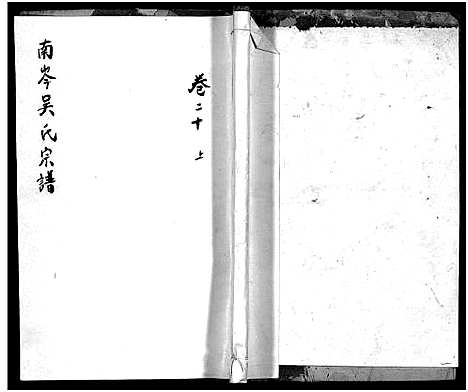 南岑吴氏宗譜
卷二十上